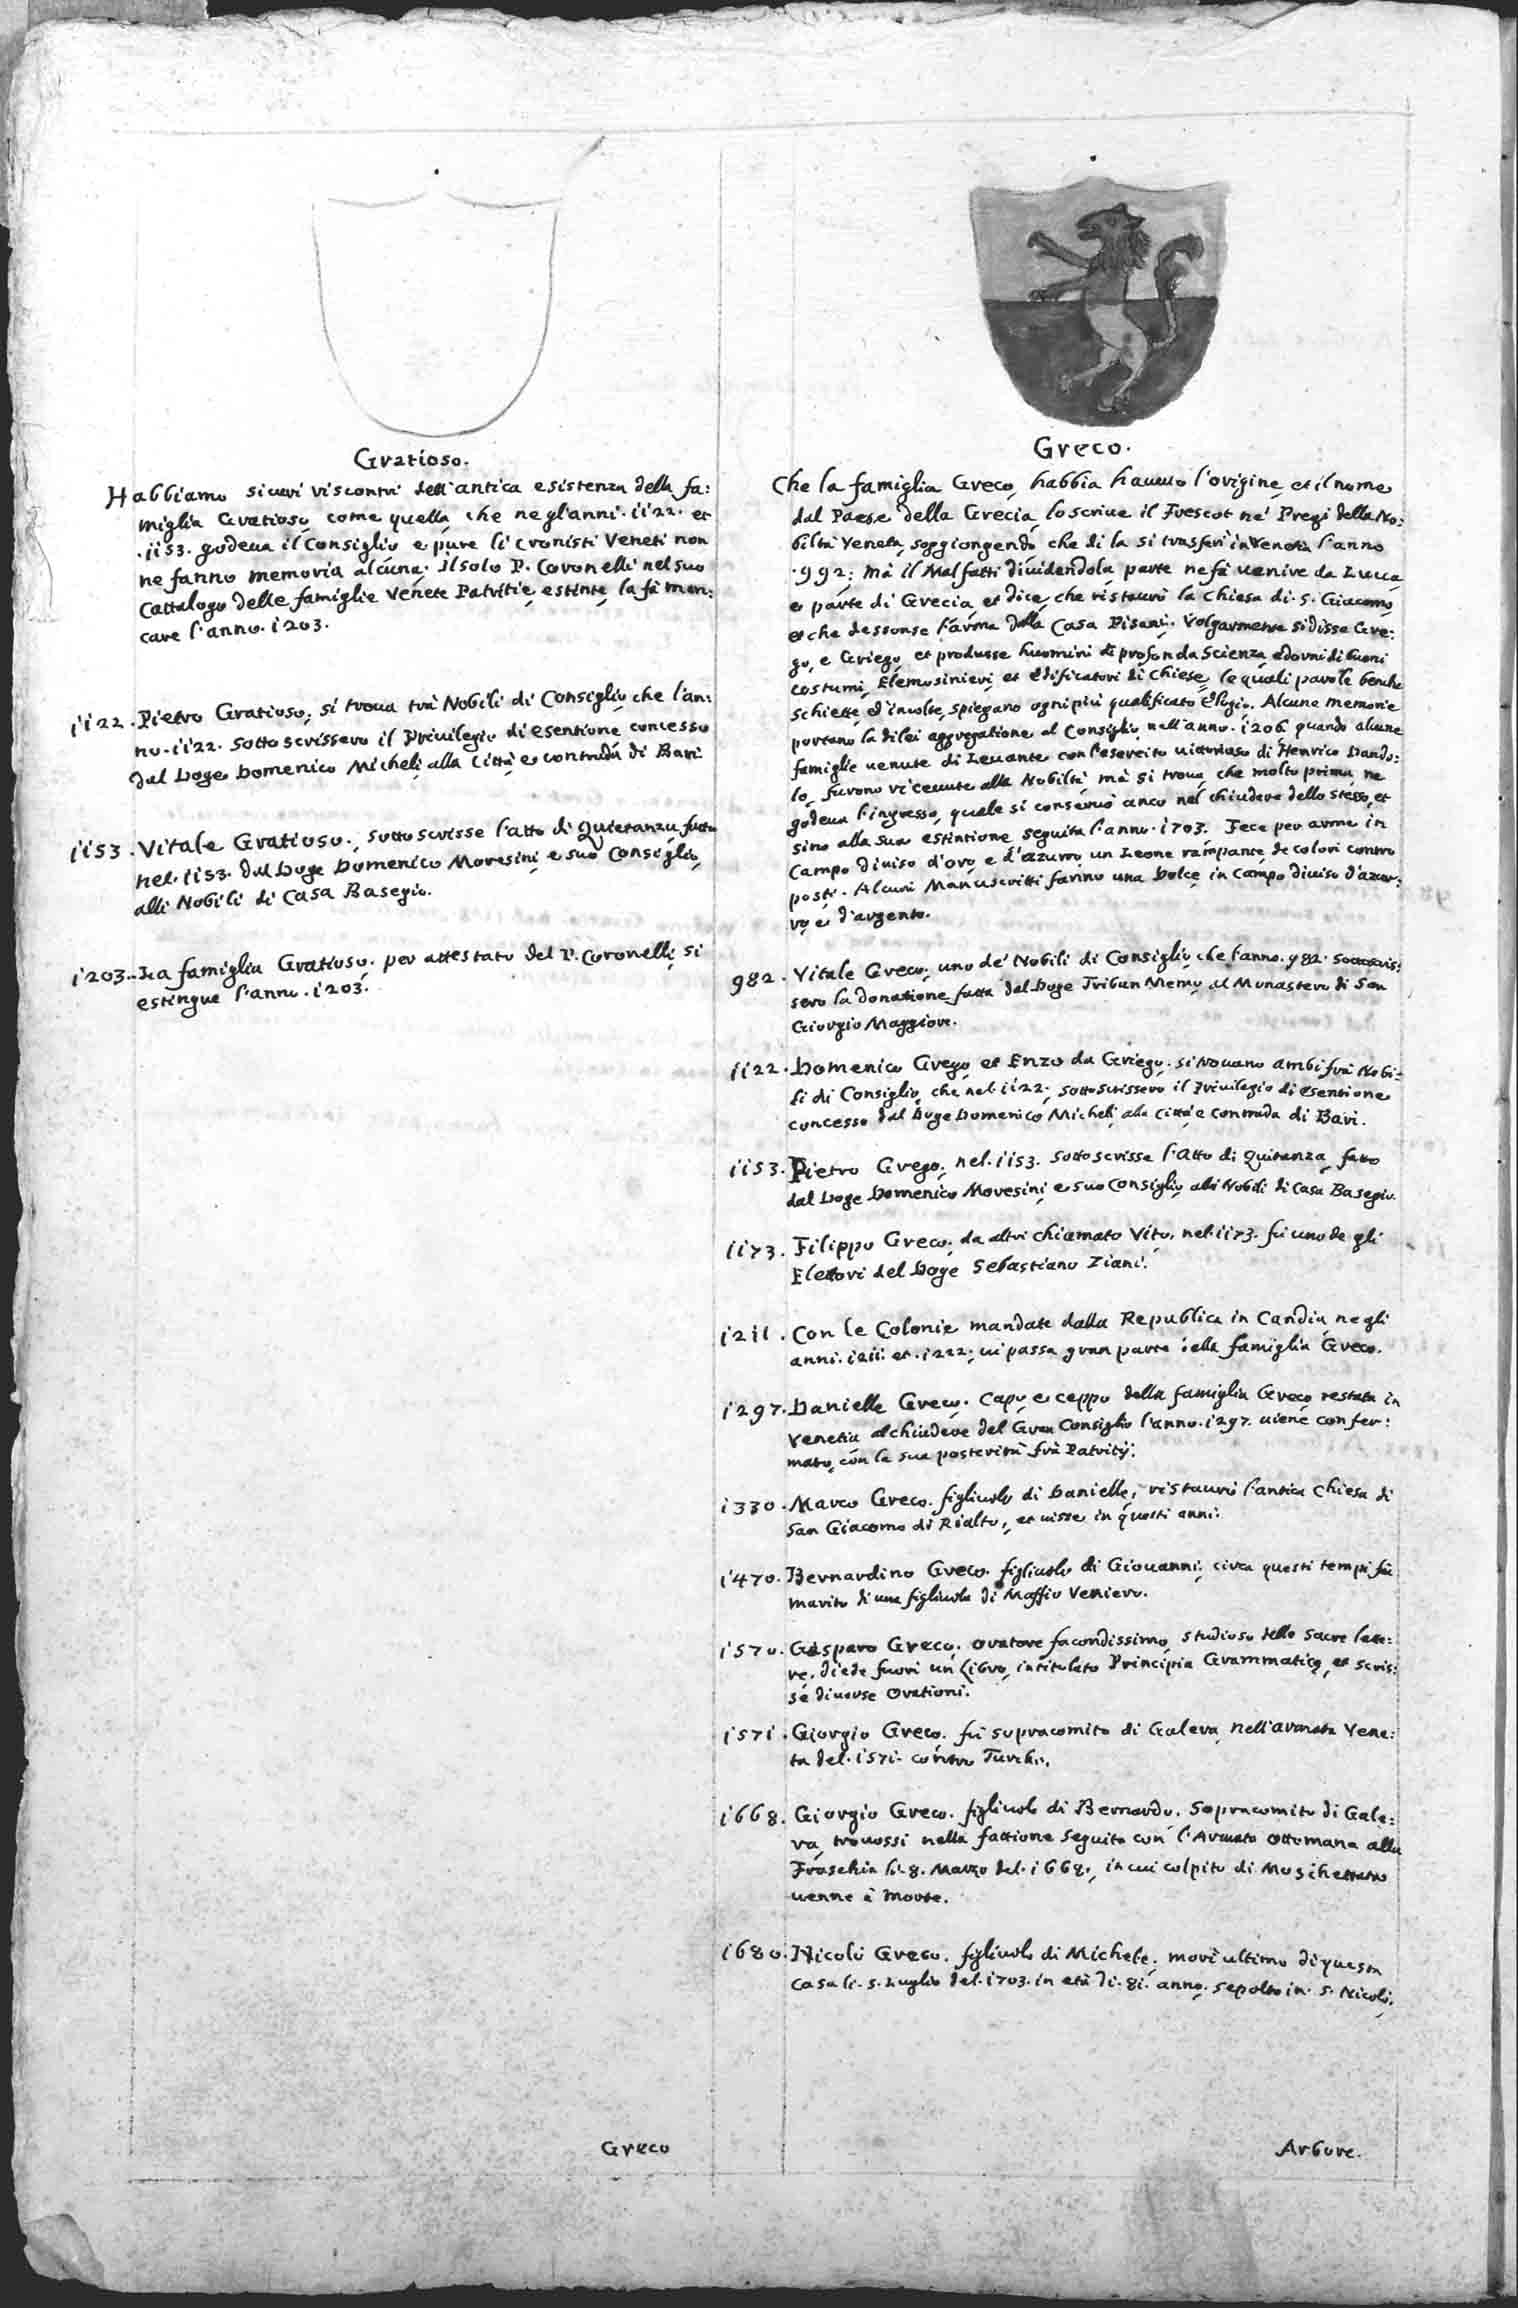 Gratioso.
Habbiamo sicuri riscontri dell'antica esistenza della fa:
miglia Gratioso, come quella, che negl'anni. 1122. et
.1153. godeua il Consiglio e pure li Cronisti Veneti non
ne fanno memoria alcuna. Il solo P. Coronelli nel suo
Cattalogo delle famiglie Venete Patritie, estinte, la fà man:
care l'anno. 1203.
1122. Pietro Gratioso, si troua trà Nobili di Consiglio, che l'an:
no. 1122. sotto scrissero il Priuilegio di esentione concesso
dal Doge Domenico Micheli, alla Città e contrada di Bari.
1153. Vitale Gratioso, sotto scrisse l'atto di Quietanza fatto
nel. 1153. dal Doge Domenico Moresini, e suo Consiglio,
alli Nobili di Casa Basegio.
1203. La famiglia Gratioso, per attestato del P. Coronelli, si
estingue l'anno. 1203.
Greco
Greco.
Che la famiglia Greco, habbia hauuto l'origine, et il nome
dal Paese della Grecia, lo scriue il Frescot ne' Pregi della No:
biltà Veneta, soggiongendo, che di la si trasferì in Venetia l'anno
.992: mà il Malfatti diuidendola, parte ne fà uenire da Lucca
e parte di Grecia, et dice, che ristaurò la Chiesa di. S. Giacomo,
et che dessonse l'arma della Casa Pisani. Volgarmente si disse Gre:
go, e Griego, et produsse huomini di profonda Scienza, adorni di buoni
costumi, Elemosinieri, et edificatori di Chiese, le quali parole benche
schiette, ed' incolte, spiegano ogni più qualificato elogio. Alcune memorie
portano la di lei aggregatione al Consiglio, nell'anno. 1206 quando alcune
famiglie uenute di Leuante con l'esercito uittorioso di Henrico Dando:
lo, furono riceuute alla Nobiltà, mà si troua, che molto prima, ne
godeua l'ingresso, quale si conseruò anco nel chiudere dello stesso, et
sino alla sua estintione seguita l'anno. 1703. Fece per arme in
Campo diuiso d'oro, e d'azurro, un Leone rampante, de colori contro
posti. Alcuni Manuscritti fanno una Dolce, in Campo diuiso d'azur:
ro, e d'argento.
982. Vitale Greco, uno de' Nobili di Consiglio, che l'anno. 982. sottoscris:
sero la donatione fatta dal Doge Tribun Memo, al Monastero di San
Giorgio Maggiore.
1122. Domenico Grego, et Enzo da Griego, si trouano ambi frà Nobi:
li di Consiglio, che nel. 1122. sotto scrissero il Priuilegio di esentione
concesso dal Doge Domenico Micheli, alla Città e Contrada di Bari.
1153. Pietro Grego, nel. 1153. sotto scrisse l'Atto di Quitanza, fatto
dal Doge Domenico Moresini, e suo Consiglio, alli Nobili di Casa Basegio.
1173. Filippo Greco, da altri chiamato Vito, nel. 1173. fù uno de gli
Elettori del Doge Sebastiano Ziani.
1211. Con le Colonie mandate dalla Republica in Candia, negli
anni. 1211. et. 1222; ui passa gran parte della famiglia Greco.
1297. Danielle Greco. Capo, e ceppo della famiglia Greco, restata in
Venetia al chiudere del Gran Consiglio l'anno. 1297. uiene confer:
mato, con la sua posterità frà Patritij.
1330. Marco Greco. figliuolo di Danielle, ristaurò l'antica Chiesa di
San Giacomo di Rialto, et uisse in questi anni.
1470. Bernardino Greco. figliuolo di Giouanni, circa questi tempi fù
marito di una figliuola di Maffio Veniero.
1570. Gasparo Greco. oratore facondissimo, studioso delle sacre lette:
re, diede fuori un Libro, intitulato Principia Grammatice, et scris:
se diuerse Orationi.
1571. Giorgio Greco. fù sopracomito di Galera, nell'armata Vene:
ta del. 1571. contro Turchi.
1668. Giorgio Greco. figliuolo di Bernardo. Sopracomito di Gale:
ra, trouossi nella fattione seguita con l'Armata Ottomana alla
Fraschia li. 8. Marzo del. 1668. in cui colpito di Moschettata
uenne à morte.
1680. Nicolò Greco. figliuolo di Michele, morì ultimo di questa
Casa li. 5. Luglio del. 1703. in età di. 81. anno, sepolto in. S. Nicolò.
Arbore.